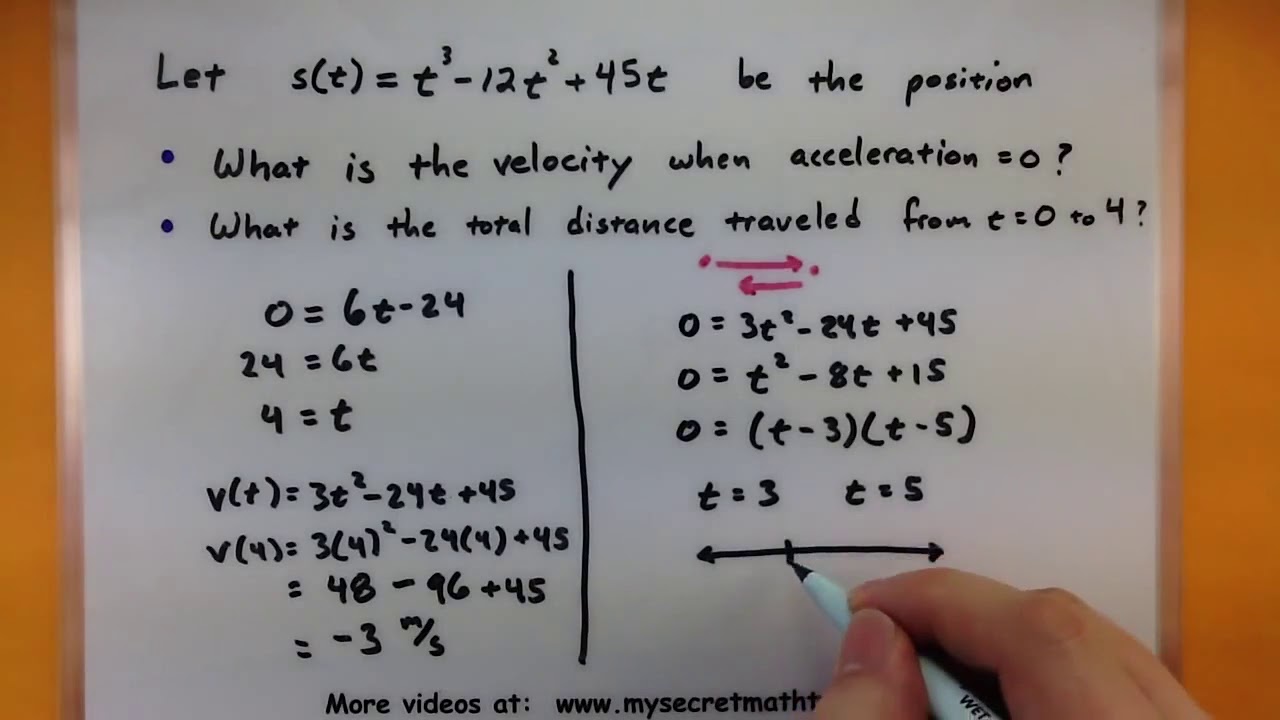 Let s(t) = t³ - 12t² + 45t be the position
• What is the velocity when acceleration = 0 ?
• What is the total distance traveled from t = 0 to 4 ?
0 = 6t - 24
24 = 6t
4 = t
v(t) = 3t² - 24t + 45
v(4) = 3(4)² - 24(4) + 45
= 48 - 96 + 45
= -3 m/s
0 = 3t² - 24t + 45
0 = t² - 8t + 15
0 = (t - 3)(t - 5)
t = 3 t = 5
More videos at: www.mysecretmatht
WET